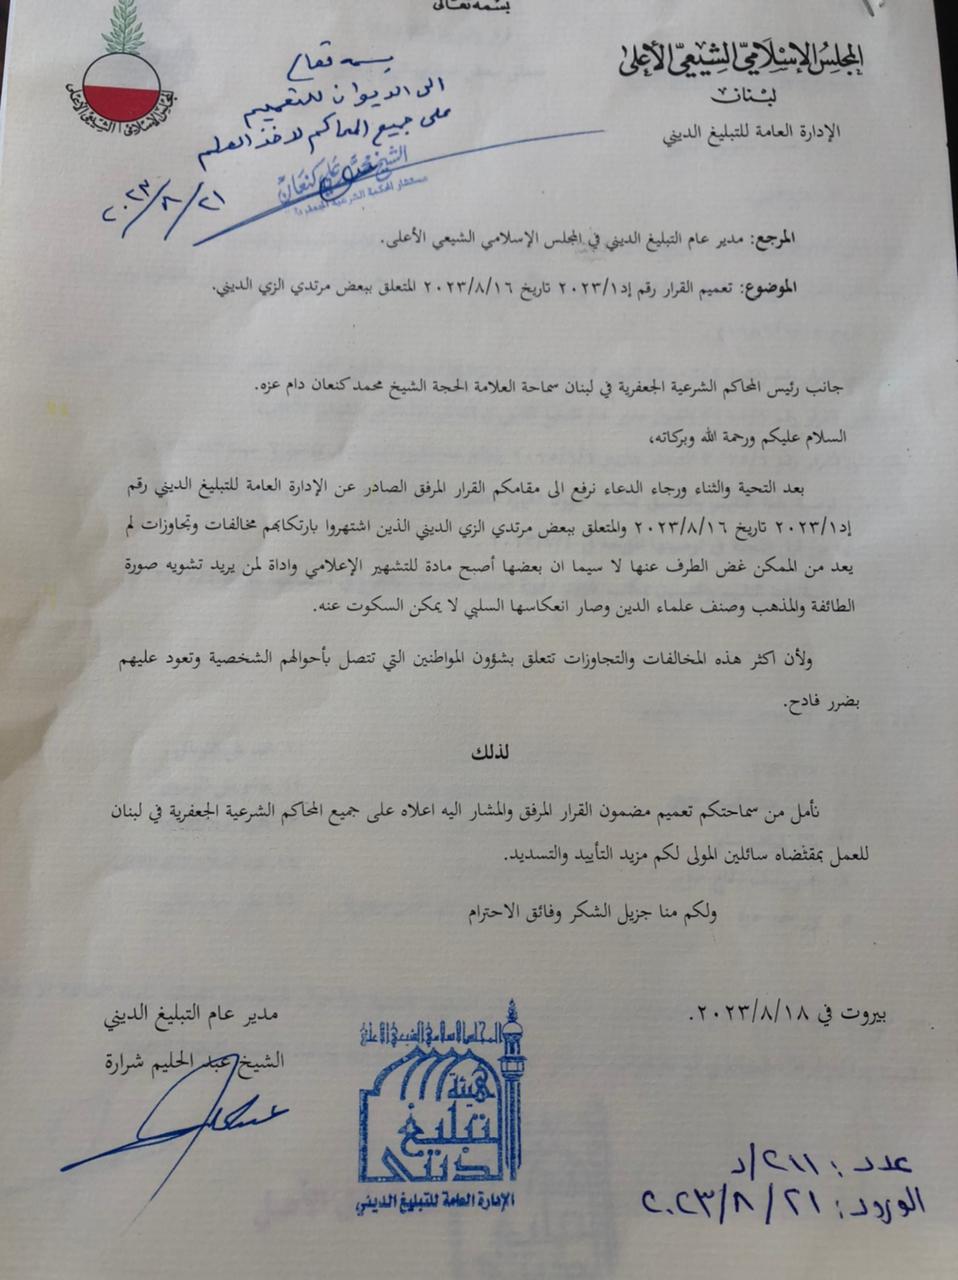 بسمه تعالى
المجلس الإسلامي الشيعي الأعلى
لبنان
الإدارة العامة للتبليغ الديني
المجلس الإسلامي الشيعي الأعلى
بسمه تعالى
الى الديوان للتعميم
على جميع المحاكم لاخذ العلم
الشيخ محمد كنعان
مستشار المحكمة الشرعية الجعفرية
٢٠٢٣/٨/٢١
المرجع: مدير عام التبليغ الديني في المجلس الإسلامي الشيعي الأعلى.
الموضوع: تعميم القرار رقم إد٢٠٢٣/١ تاريخ ٢٠٢٣/٨/١٦ المتعلق ببعض مرتدي الزي الديني.
جانب رئيس المحاكم الشرعية الجعفرية في لبنان سماحة العلامة الحجة الشيخ محمد كنعان دام عزه.
السلام عليكم ورحمة الله وبركاته،
بعد التحية والثناء ورجاء الدعاء نرفع الى مقامكم القرار المرفق الصادر عن الإدارة العامة للتبليغ الديني رقم
إد٢٠٢٣/١ تاريخ ٢٠٢٣/٨/١٦ والمتعلق ببعض مرتدي الزي الديني الذين اشتهروا بارتكابهم مخالفات وتجاوزات لم
يعد من الممكن غض الطرف عنها لا سيما ان بعضها أصبح مادة للتشهير الإعلامي واداة لمن يريد تشويه صورة
الطائفة والمذهب وصنف علماء الدين وصار انعكاسها السلبي لا يمكن السكوت عنه.
ولأن اكثر هذه المخالفات والتجاوزات تتعلق بشؤون المواطنين التي تتصل بأحوالهم الشخصية وتعود عليهم
بضرر فادح.
لذلك
نأمل من سماحتكم تعميم مضمون القرار المرفق والمشار اليه اعلاه على جميع المحاكم الشرعية الجعفرية في لبنان
للعمل بمقتضاه سائلين المولى لكم مزيد التأييد والتسديد.
ولكم منا جزيل الشكر وفائق الاحترام
بيروت في ٢٠٢٣/٨/١٨.
مدير عام التبليغ الديني
الشيخ عبد الحليم شرارة
المجلس الاسلامي الشيعي الاعلى
هيئة
التبليغ
الديني
الإدارة العامة للتبليغ الديني
عدد: ٢١١/د
الورود: ٢٠٢٣/٨/٢١